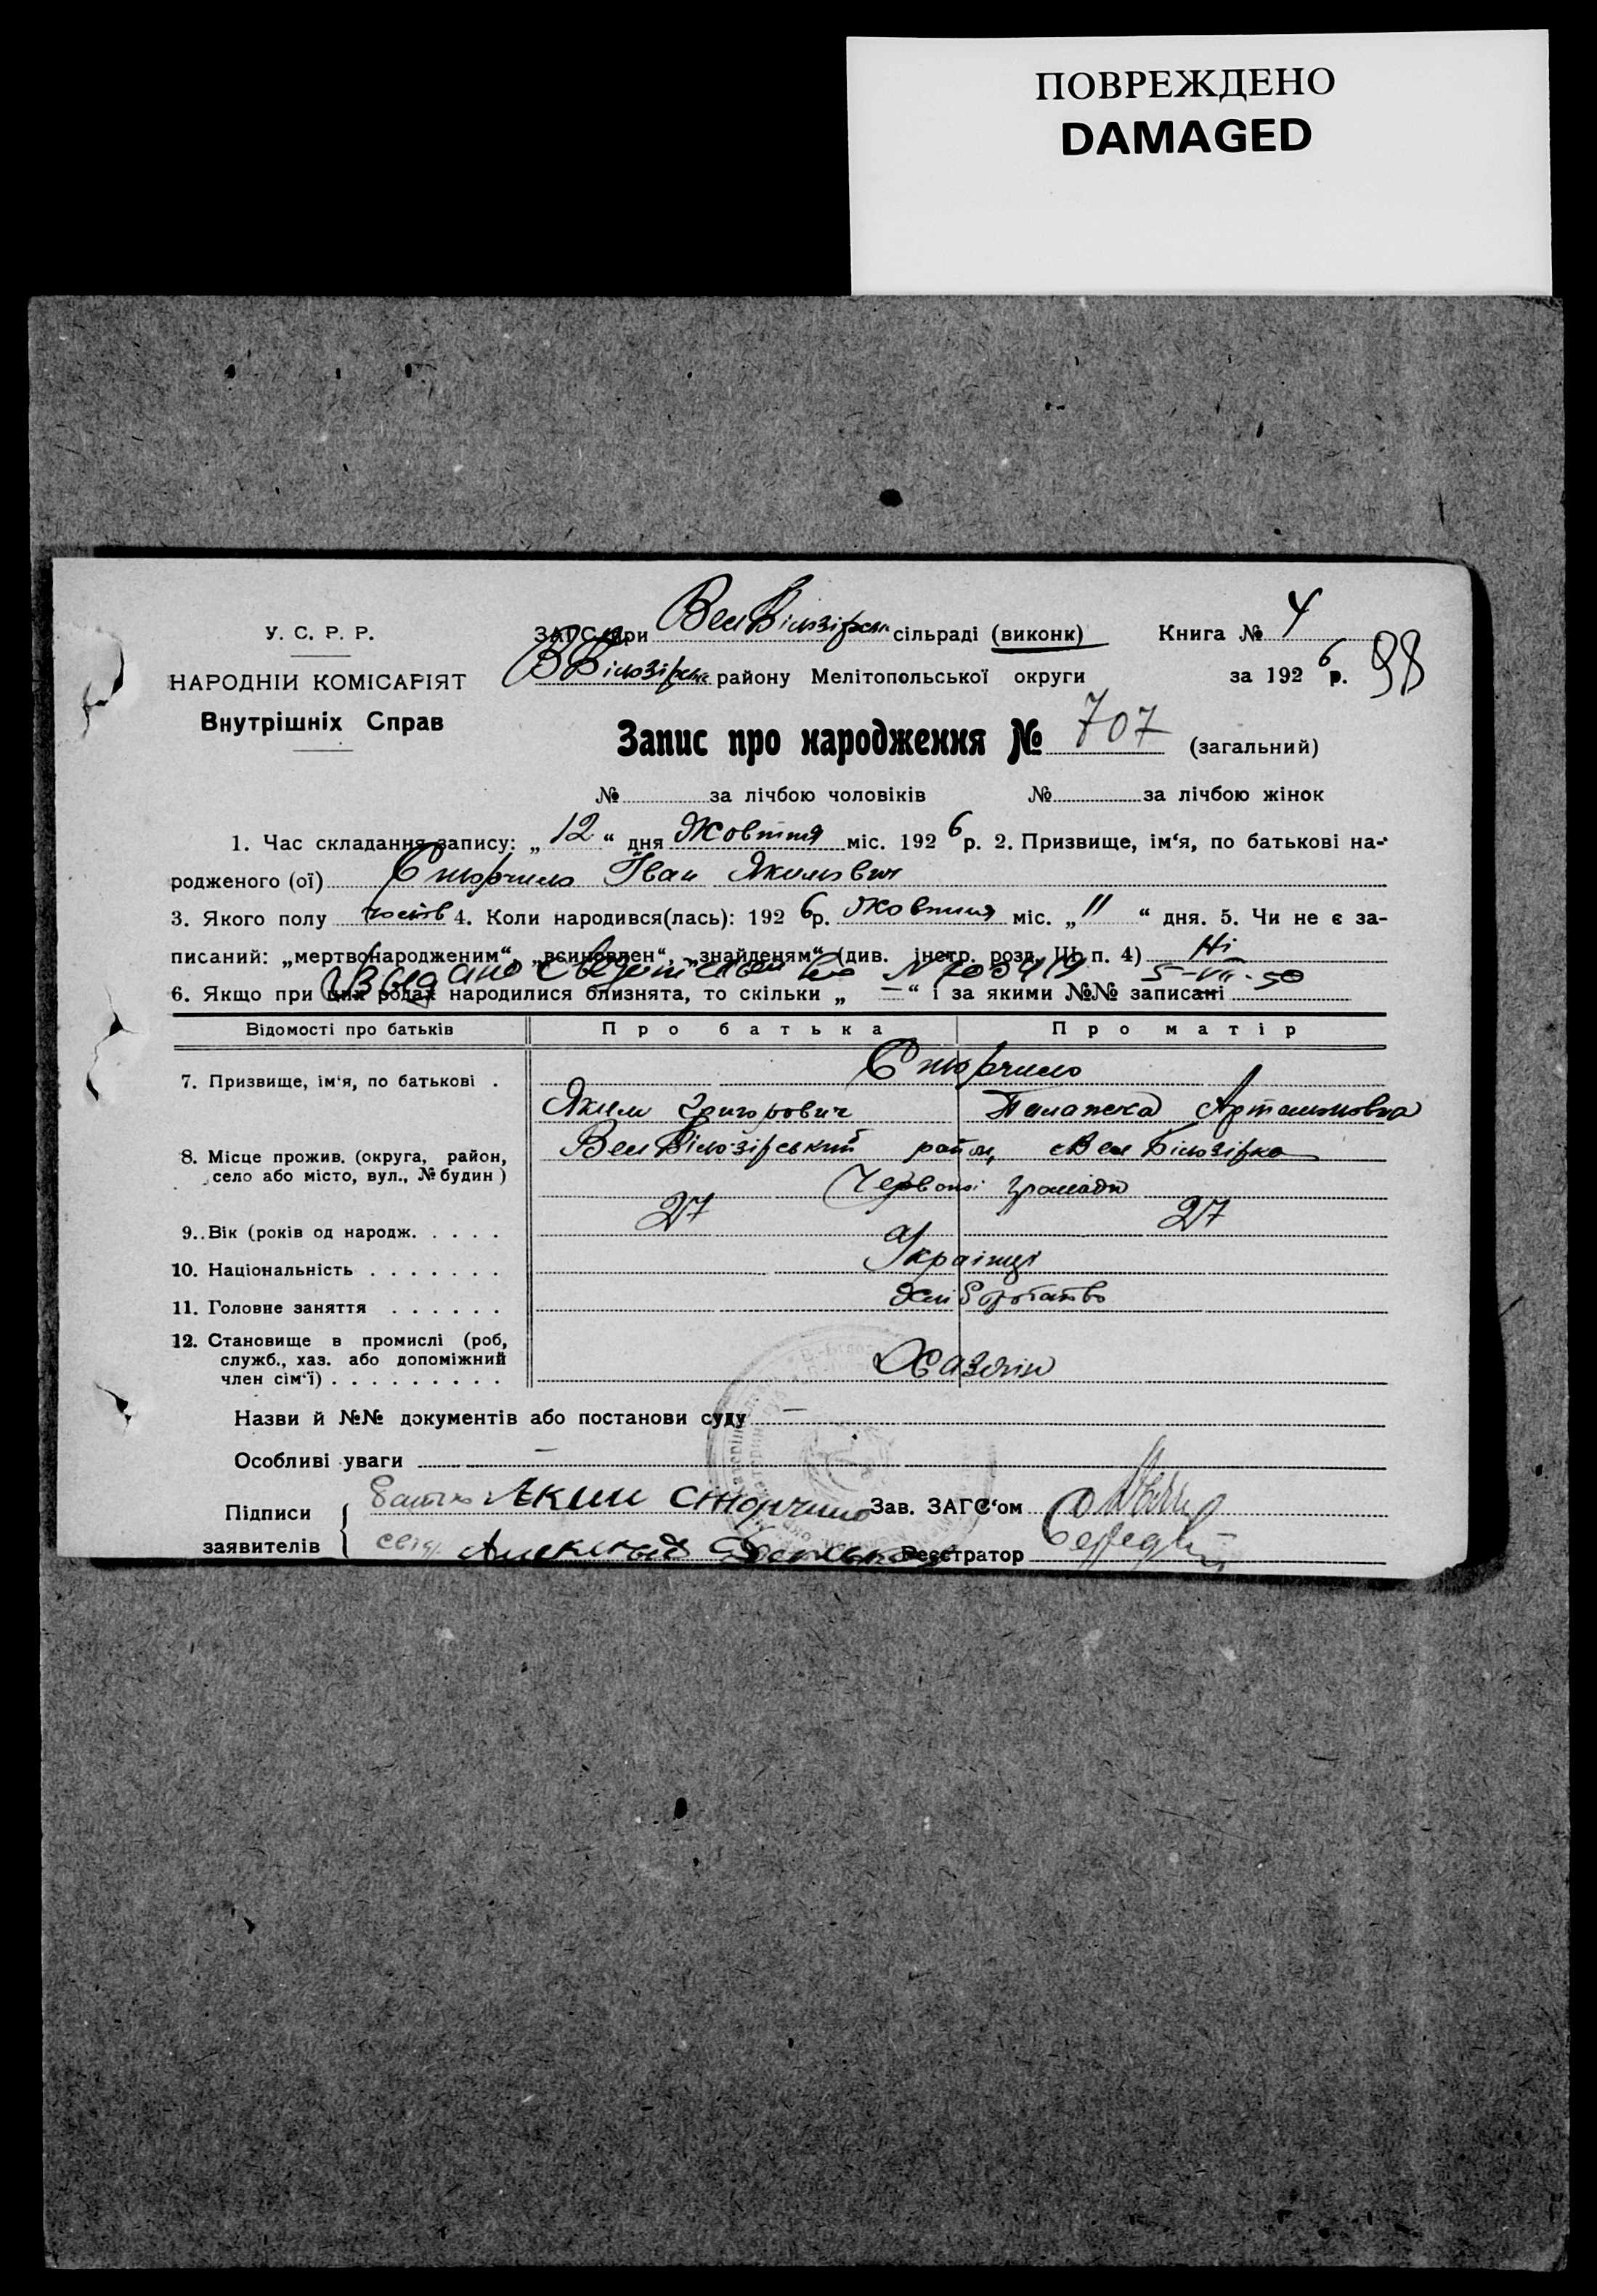 ПОВРЕЖДЕНО
DAMAGED
У. С. Р. Р.
НАРОДНІЙ КОМІСАРІЯТ
Внутрішніх Справ
ЗАГС при ВелБілозірськ сільраді (виконк) Книга № 4
ВБілозірськ району Мелітопольської округи за 1926 р. 98
Запис про народження № 707 (загальний)
№ за лічбою чоловіків № за лічбою жінок
1. Час складання запису: „12“ дня Жовтня міс. 1926 р. 2. Призвище, ім‘я, по батькові на-
родженого (ої) Сторчило Іван Якимович
3. Якого полу 4. Коли народився(лась): 1926 р. Жовтня міс. „11“ дня. 5. Чи не є за-
писаний: „мертвонародженим“, „всиновлен“, „знайденям“ (див. інстр. розд. Ш. п. 4) Ні
5-VII-50
6. Якщо при цих родах народилися близнята, то скільки „—“ і за якими №№ записані
Відомості про батьків Про батька Про матір
7. Призвище, ім‘я, по батькові . Сторчило
Яким Григорович Палажка Артамоновна
8. Місце прожив. (округа, район, село або місто, вул., № будин) ВелБілозірський район, Вел Білозірка
Червоної громади
9. Вік (років од народж. . . . . 27 27
10. Національність . . . . . . . Українці
11. Головне заняття . . . . . . Хліборобство
12. Становище в промислі (роб,
служб., хаз. або допоміжний
член сім‘ї) . . . . . . . . . Хазяїн
Назви й №№ документів або постанови суду —
Особливі уваги —
Підписи заявителів
Батько Яким Сторчило Зав. ЗАГС‘ом
свід. Реєстратор